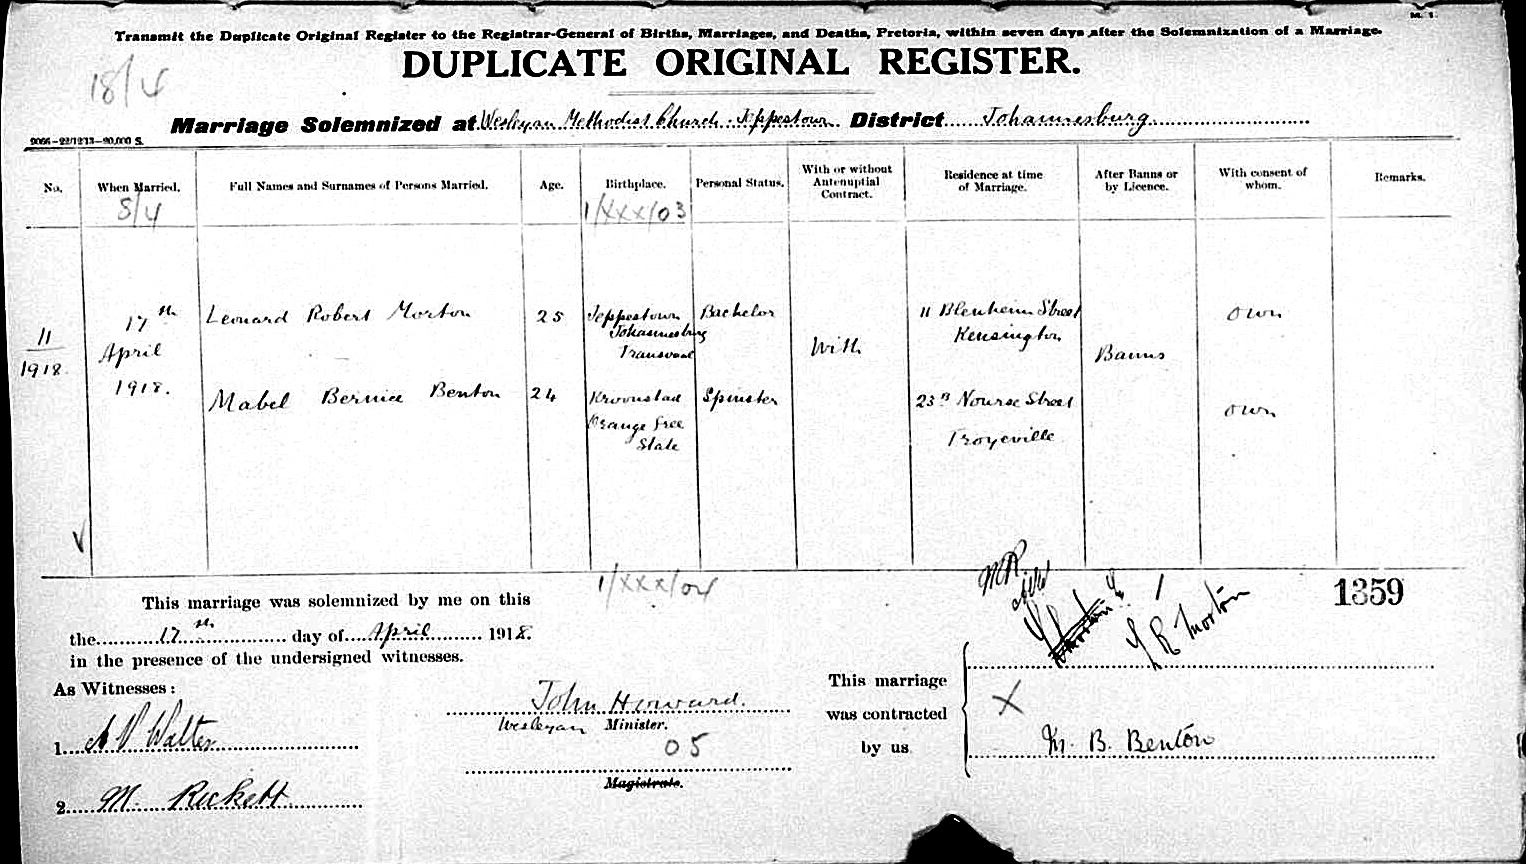 M. 1.
Transmit the Duplicate Original Register to the Registrar-General of Births, Marriages, and Deaths, Pretoria, within seven days after the Solemnization of a Marriage.
DUPLICATE ORIGINAL REGISTER.
18/4
Marriage Solemnized at Wesleyan Methodist Church - Jeppestown District Johannesburg
9066-22/12/13-90,000 S.
No. When Married. Full Names and Surnames of Persons Married. Age. Birthplace. Personal Status. With or without Antenuptial Contract. Residence at time of Marriage. After Banns or by Licence. With consent of whom. Remarks.
S/4 1/xxx/03
11/1918. 17th April 1918. Leonard Robert Morton 25 Jeppestown Johannesburg Transvaal Bachelor With 11 Blenheim Street Kensington Banns own
Mabel Bernice Benton 24 Kroonstad Orange Free State Spinster 23B Nourse Street Troyeville own
1/xxx/04
1359
This marriage was solemnized by me on this
the 17th day of April 1918.
in the presence of the undersigned witnesses.
As Witnesses:
1. A V Walter
2. M. Rickett
John Howard.
Wesleyan Minister.
05
Magistrate.
This marriage
was contracted
by us
L R Morton
X
M. B. Benton